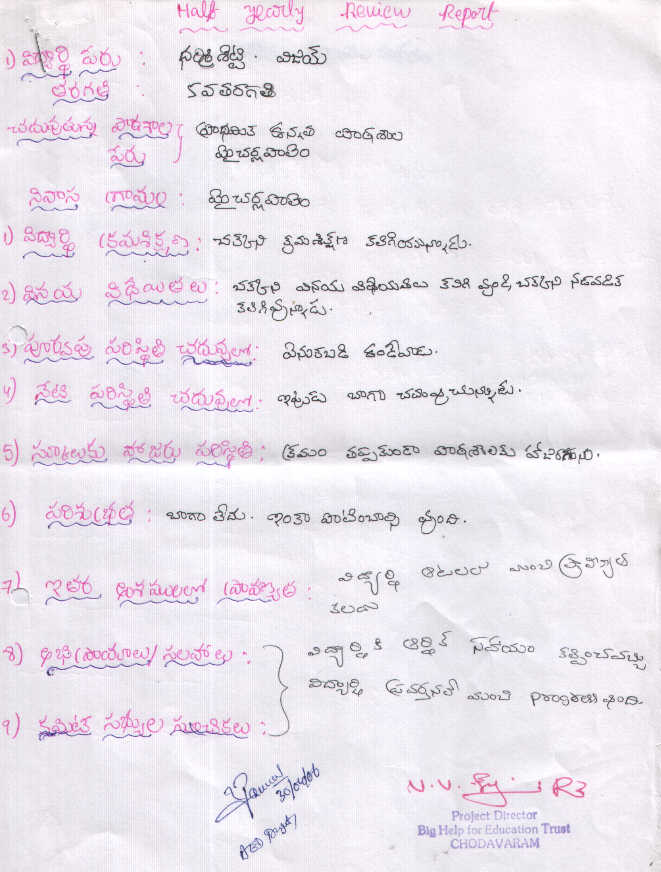 Half yearly Review Report
1) విద్యార్థి పేరు : ధరిశెట్టి. విజయ్
తరగతి : 5వ తరగతి
చదువుచున్న పాఠశాల ప్రాథమిక ఉన్నత పాఠశాల
పేరు మైచర్లపాలెం
నివాస గ్రామం : మైచర్లపాలెం
1) విద్యార్థి క్రమశిక్షణ : చక్కని క్రమశిక్షణ కలిగియున్నాడు.
2) వినయ విధేయతలు : చక్కని వినయ విధేయతలు కలిగి వుండి, చక్కని నడవడిక
కలిగివున్నాడు.
3) పూర్వపు పరిస్థితి చదువులో : వెనుకబడి ఉండేవాడు.
4) నేటి పరిస్థితి చదువులో : ఇప్పుడు బాగా చదువుచున్నాడు.
5) స్కూలుకు హాజరు పరిస్థితి : క్రమం తప్పకుండా పాఠశాలకు
6) పరిశుభ్రత : బాగా లేదు. ఇంకా పాటించాల్సి వుంది.
7) ఇతర అంశములలో ప్రావీణ్యత : విద్యార్థి ఆటలలో మంచి ప్రావీణ్యత
కలదు
8) అభిప్రాయాలు/సలహాలు : విద్యార్థికి ఆర్థిక సహాయం కల్పించవచ్చు
విద్యార్థి ప్రవర్తనలో మంచి వుంది.
9) కమిటీ సభ్యుల సూచికలు :
30/04/06
N. V.
Project Director
Big Help for Education Trust
CHODAVARAM